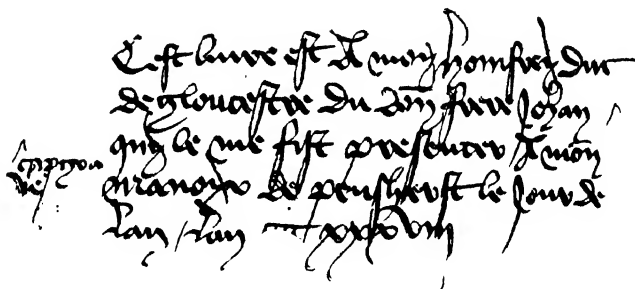 Cest livre est A moy homfrey duc
de gloucestre du don frere Johan
quy le me fist presenter A mon
capgra
ve
manoyr de pensherst le Jour de
lan / lan xxxviii